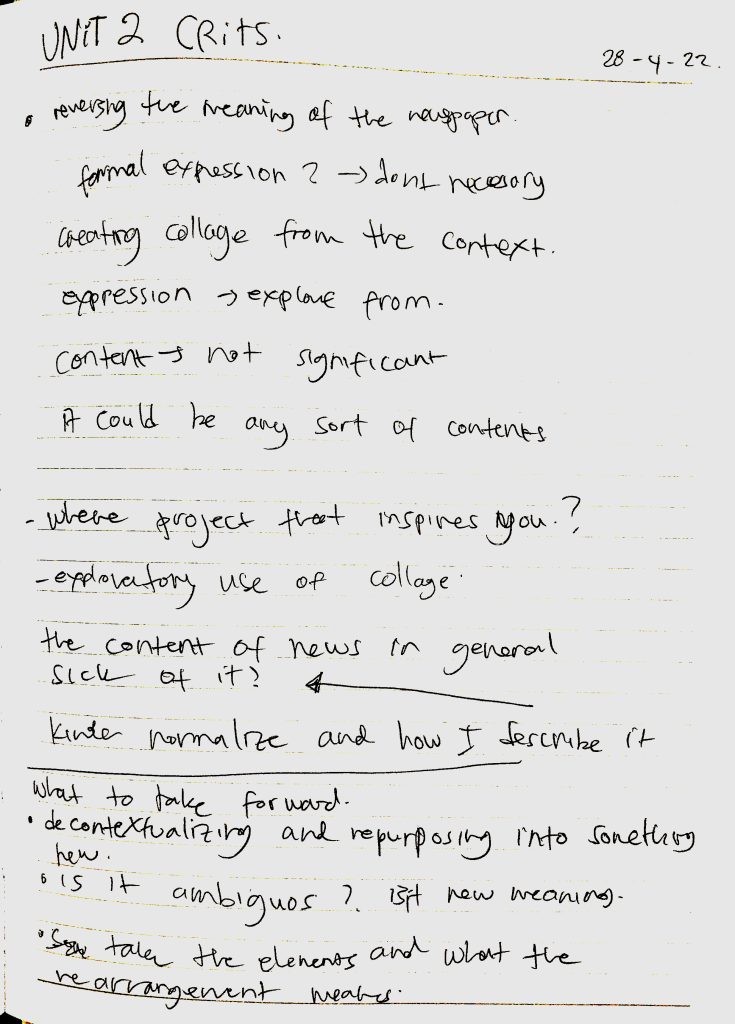 UNIT 2 CRITS.
28-4-22.
• reversing the meaning of the newspaper.
formal expression ? → dont necesory
creating collage from the context.
expression → explore from.
content → not significant
it could be any sort of contents
- where project that inspires you.?
- exploratory use of collage.
the content of news in general
sick of it?
kinda normalize and how I describe it
what to take forward.
• decontextualizing and repurposing into something
new.
• is it ambiguos ? isit new meaning.
• take the elements and what the
rearrangement means.